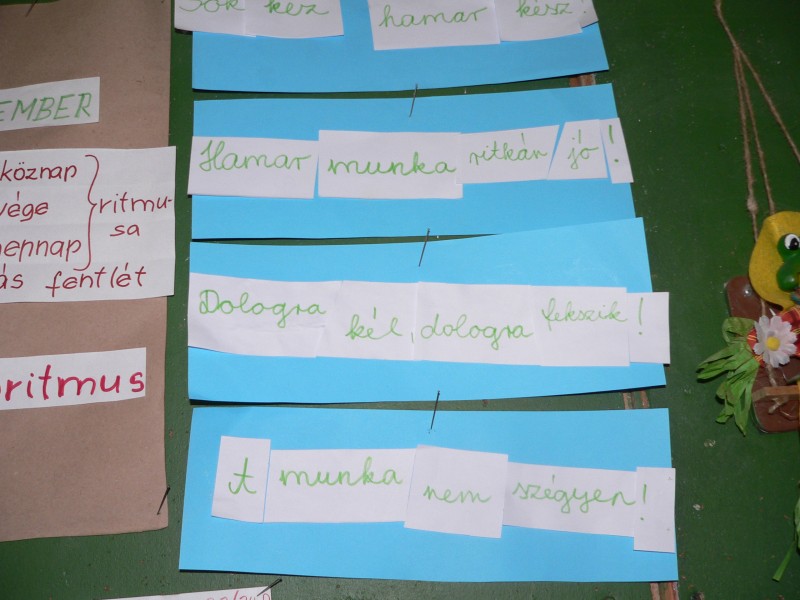 Sok kéz hamar kész!
Hamar munka ritkán jó!
Dologra kél, dologra fekszik!
A munka nem szégyen!
EMBER
köznap
vége
ritmu-
sa
nepnap
ás fentlét
ritmus